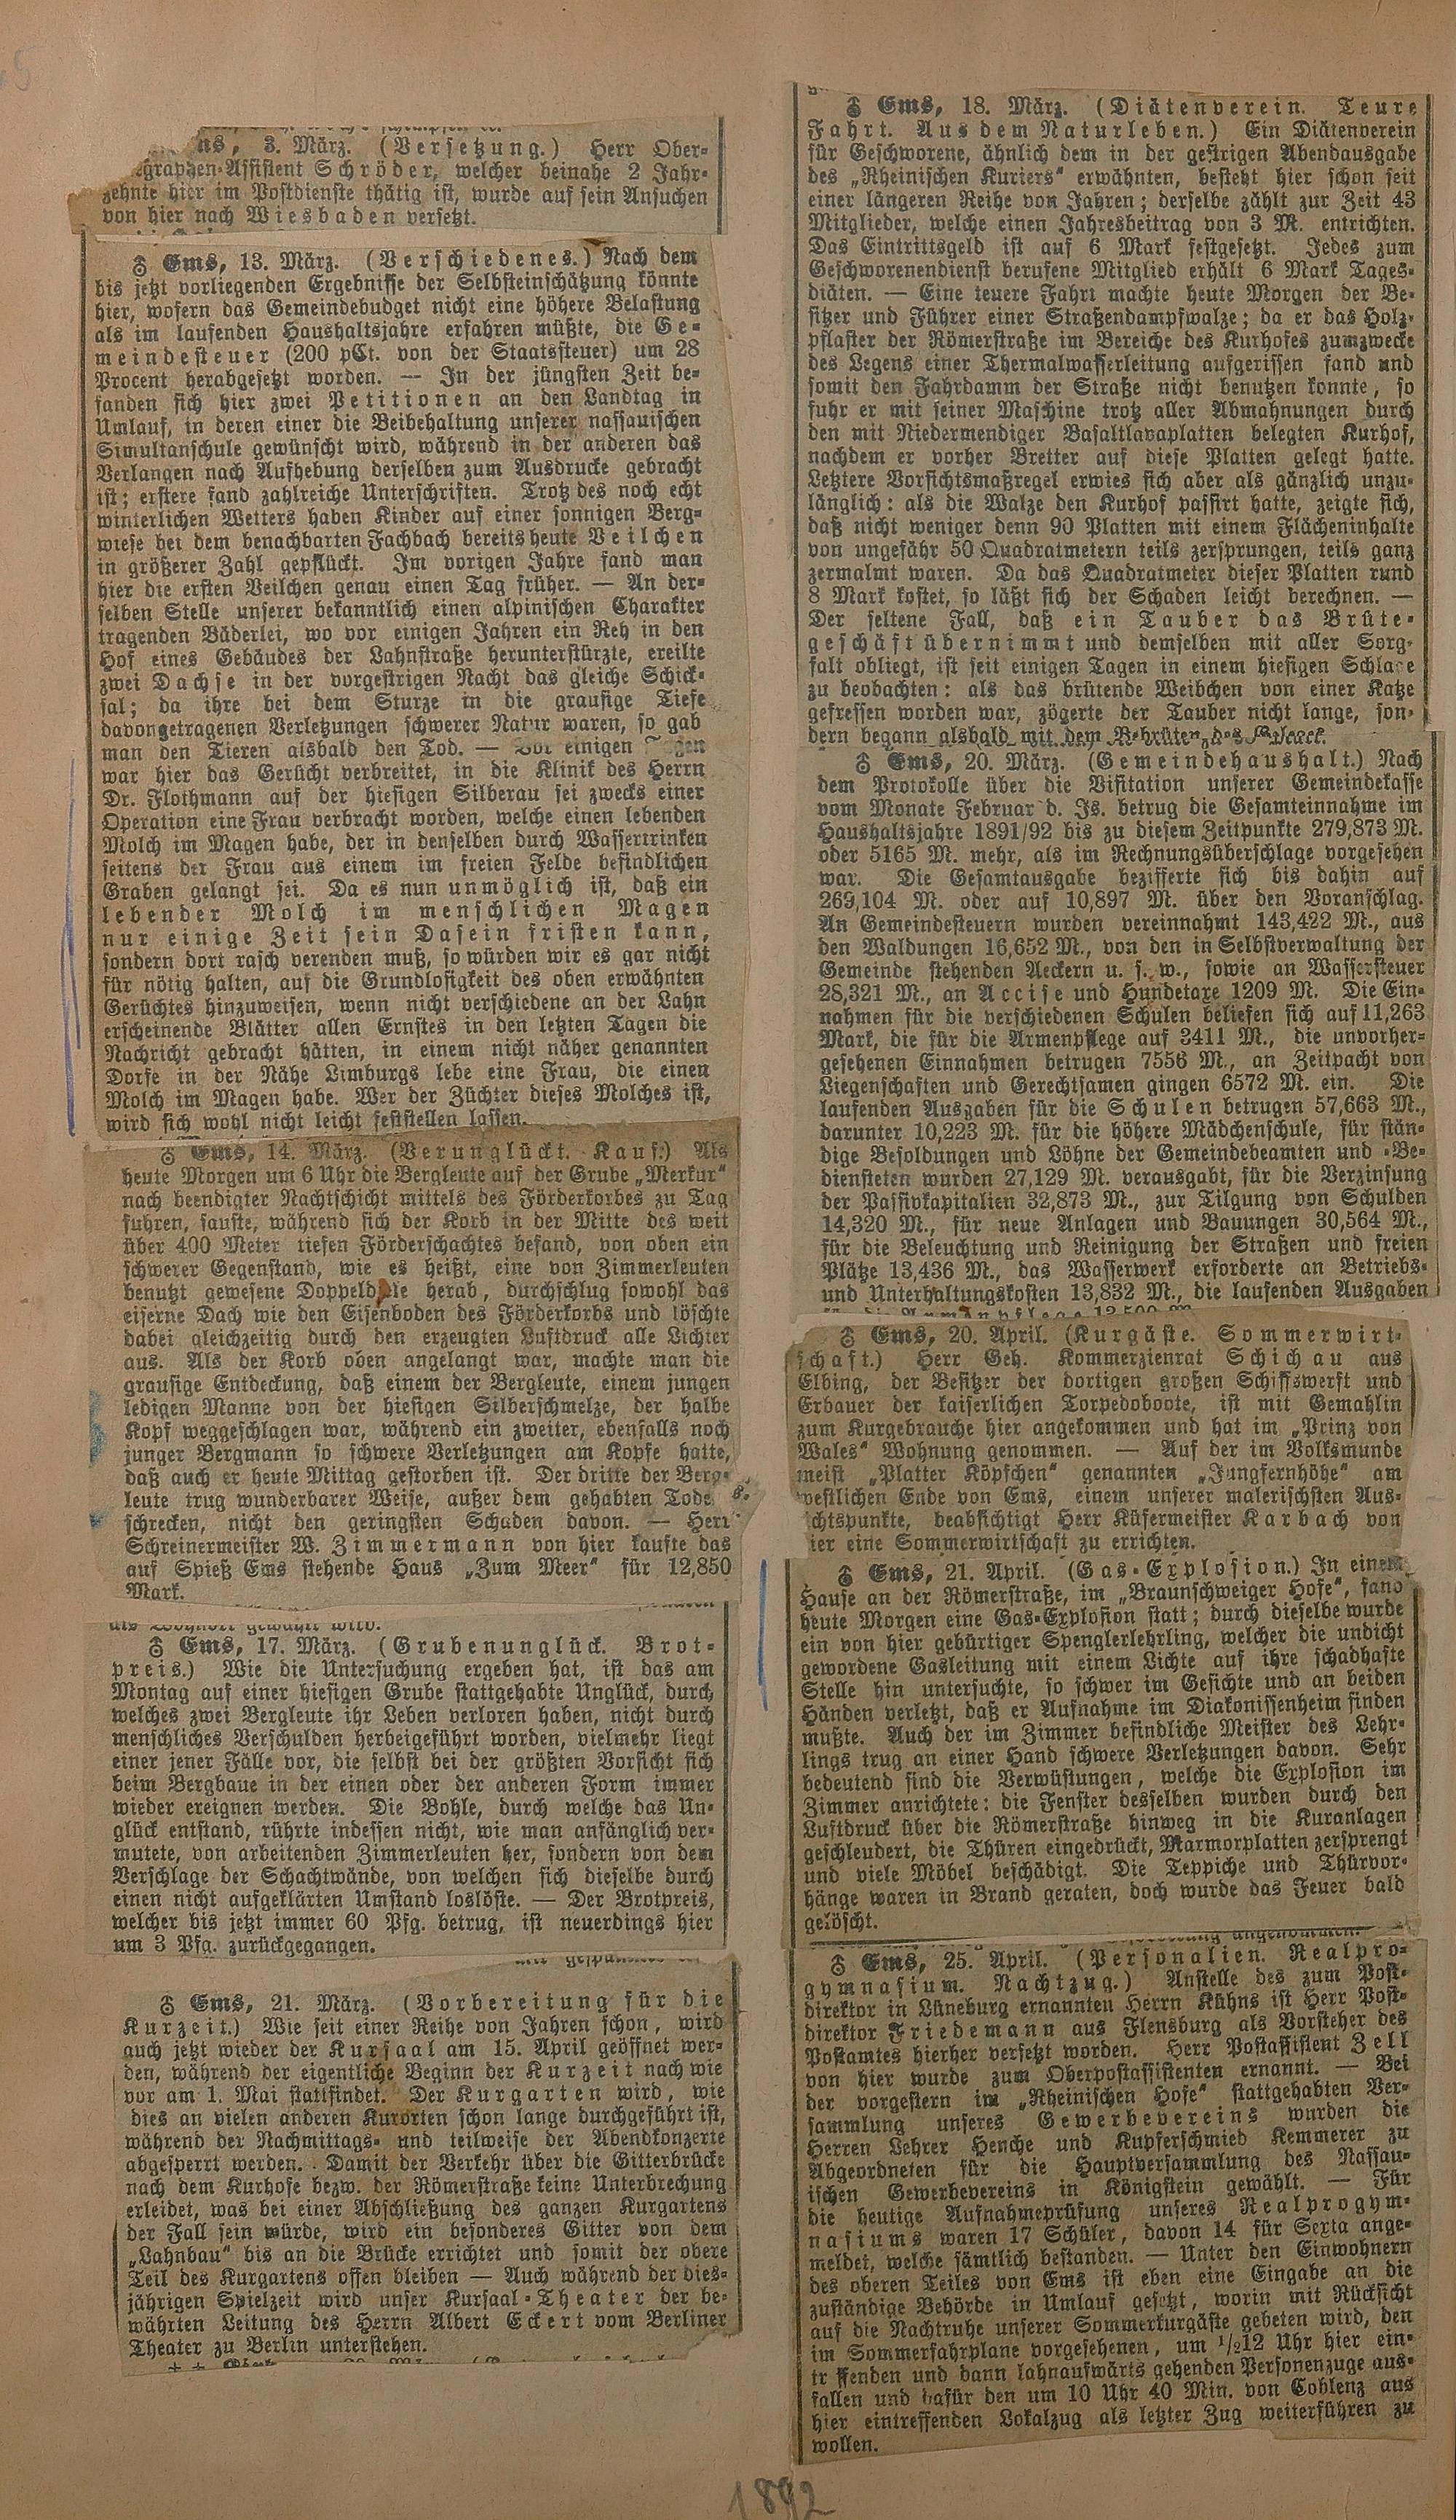 ns, 3. März. (Versetzung.) Herr Ober-
graphen-Assistent Schröder, welcher beinahe 2 Jahr-
zehnte hier im Postdienste thätig ist, wurde auf sein Ansuchen
von hier nach Wiesbaden versetzt.
♁ Ems, 13. März. (Verschiedenes.) Nach dem
bis jetzt vorliegenden Ergebnisse der Selbsteinschätzung könnte
hier, wofern das Gemeindebudget nicht eine höhere Belastung
als im laufenden Haushaltsjahre erfahren müßte, die Ge-
meindesteuer (200 pCt. von der Staatssteuer) um 28
Procent herabgesetzt worden. — In der jüngsten Zeit be-
fanden sich hier zwei Petitionen an den Landtag in
Umlauf, in deren einer die Beibehaltung unserer nassauischen
Simultanschule gewünscht wird, während in der anderen das
Verlangen nach Aufhebung derselben zum Ausdrucke gebracht
ist; erstere fand zahlreiche Unterschriften. Trotz des noch echt
winterlichen Wetters haben Kinder auf einer sonnigen Berg-
wiese bei dem benachbarten Fachbach bereits heute Veilchen
in größerer Zahl gepflückt. Im vorigen Jahre fand man
hier die ersten Veilchen genau einen Tag früher. — An der-
selben Stelle unserer bekanntlich einen alpinischen Charakter
tragenden Bäderlei, wo vor einigen Jahren ein Reh in den
Hof eines Gebäudes der Lahnstraße herunterstürzte, ereilte
zwei Dachse in der vorgestrigen Nacht das gleiche Schick-
sal; da ihre bei dem Sturze in die grausige Tiefe
davongetragenen Verletzungen schwerer Natur waren, so gab
man den Tieren alsbald den Tod. — Vor einigen
war hier das Gerücht verbreitet, in die Klinik des Herrn
Dr. Flothmann auf der hiesigen Silberau sei zwecks einer
Operation eine Frau verbracht worden, welche einen lebenden
Molch im Magen habe, der in denselben durch Wassertrinken
seitens der Frau aus einem im freien Felde befindlichen
Graben gelangt sei. Da es nun unmöglich ist, daß ein
lebender Molch im menschlichen Magen
nur einige Zeit sein Dasein fristen kann,
sondern dort rasch verenden muß, so würden wir es gar nicht
für nötig halten, auf die Grundlosigkeit des oben erwähnten
Gerüchtes hinzuweisen, wenn nicht verschiedene an der Lahn
erscheinende Blätter allen Ernstes in den letzten Tagen die
Nachricht gebracht hätten, in einem nicht näher genannten
Dorfe in der Nähe Limburgs lebe eine Frau, die einen
Molch im Magen habe. Wer der Züchter dieses Molches ist,
wird sich wohl nicht leicht feststellen lassen.
♁ Ems, 14. März. (Verunglückt. Kauf.) Als
heute Morgen um 6 Uhr die Bergleute auf der Grube „Merkur“
nach beendigter Nachtschicht mittels des Förderkorbes zu Tag
fuhren, sauste, während sich der Korb in der Mitte des weit
über 400 Meter tiefen Förderschachtes befand, von oben ein
schwerer Gegenstand, wie es heißt, eine von Zimmerleuten
benutzt gewesene Doppeldiele herab, durchschlug sowohl das
eiserne Dach wie den Eisenboden des Förderkorbs und löschte
dabei gleichzeitig durch den erzeugten Luftdruck alle Lichter
aus. Als der Korb oben angelangt war, machte man die
grausige Entdeckung, daß einem der Bergleute, einem jungen
ledigen Manne von der hiesigen Silberschmelze, der halbe
Kopf weggeschlagen war, während ein zweiter, ebenfalls noch
junger Bergmann so schwere Verletzungen am Kopfe hatte,
daß auch er heute Mittag gestorben ist. Der dritte der Berg-
leute trug wunderbarer Weise, außer dem gehabten Todes-
schrecken, nicht den geringsten Schaden davon. — Herr
Schreinermeister W. Zimmermann von hier kaufte das
auf Spieß Ems stehende Haus „Zum Meer“ für 12,850
Mark.
als Wohnort gewählt wird.
♁ Ems, 17. März. (Grubenunglück. Brot-
preis.) Wie die Untersuchung ergeben hat, ist das am
Montag auf einer hiesigen Grube stattgehabte Unglück, durch
welches zwei Bergleute ihr Leben verloren haben, nicht durch
menschliches Verschulden herbeigeführt worden, vielmehr liegt
einer jener Fälle vor, die selbst bei der größten Vorsicht sich
beim Bergbaue in der einen oder der anderen Form immer
wieder ereignen werden. Die Bohle, durch welche das Un-
glück entstand, rührte indessen nicht, wie man anfänglich ver-
mutete, von arbeitenden Zimmerleuten her, sondern von dem
Verschlage der Schachtwände, von welchen sich dieselbe durch
einen nicht aufgeklärten Umstand loslöste. — Der Brotpreis,
welcher bis jetzt immer 60 Pfg. betrug, ist neuerdings hier
um 3 Pfg. zurückgegangen.
♁ Ems, 21. März. (Vorbereitung für die
Kurzeit.) Wie seit einer Reihe von Jahren schon, wird
auch jetzt wieder der Kursaal am 15. April geöffnet wer-
den, während der eigentliche Beginn der Kurzeit nach wie
vor am 1. Mai stattfindet. Der Kurgarten wird, wie
dies an vielen anderen Kurorten schon lange durchgeführt ist,
während der Nachmittags- und teilweise der Abendkonzerte
abgesperrt werden. Damit der Verkehr über die Gitterbrücke
nach dem Kurhofe bezw. der Römerstraße keine Unterbrechung
erleidet, was bei einer Abschließung des ganzen Kurgartens
der Fall sein würde, wird ein besonderes Gitter von dem
„Lahnbau“ bis an die Brücke errichtet und somit der obere
Teil des Kurgartens offen bleiben — Auch während der dies-
jährigen Spielzeit wird unser Kursaal-Theater der be-
währten Leitung des Herrn Albert Eckert vom Berliner
Theater zu Berlin unterstehen.
♁ Ems, 18. März. (Diätenverein. Teure
Fahrt. Aus dem Naturleben.) Ein Diätenverein
für Geschworene, ähnlich dem in der gestrigen Abendausgabe
des „Rheinischen Kuriers“ erwähnten, besteht hier schon seit
einer längeren Reihe von Jahren; derselbe zählt zur Zeit 43
Mitglieder, welche einen Jahresbeitrag von 3 M. entrichten.
Das Eintrittsgeld ist auf 6 Mark festgesetzt. Jedes zum
Geschworenendienst berufene Mitglied erhält 6 Mark Tages-
diäten. — Eine teuere Fahrt machte heute Morgen der Be-
sitzer und Führer einer Straßendampfwalze; da er das Holz-
pflaster der Römerstraße im Bereiche des Kurhofes zumzwecke
des Legens einer Thermalwasserleitung aufgerissen fand und
somit den Fahrdamm der Straße nicht benutzen konnte, so
fuhr er mit seiner Maschine trotz aller Abmahnungen durch
den mit Niedermendiger Basaltlavaplatten belegten Kurhof,
nachdem er vorher Bretter auf diese Platten gelegt hatte.
Letztere Vorsichtsmaßregel erwies sich aber als gänzlich unzu-
länglich: als die Walze den Kurhof passirt hatte, zeigte sich,
daß nicht weniger denn 90 Platten mit einem Flächeninhalte
von ungefähr 50 Quadratmetern teils zersprungen, teils ganz
zermalmt waren. Da das Quadratmeter dieser Platten rund
8 Mark kostet, so läßt sich der Schaden leicht berechnen. —
Der seltene Fall, daß ein Tauber das Brüte-
geschäft übernimmt und demselben mit aller Sorg-
falt obliegt, ist seit einigen Tagen in einem hiesigen Schlage
zu beobachten: als das brütende Weibchen von einer Katze
gefressen worden war, zögerte der Tauber nicht lange, son-
dern begann alsbald mit dem Bebrüten des Geleges.
♁ Ems, 20. März. (Gemeindehaushalt.) Nach
dem Protokolle über die Visitation unserer Gemeindekasse
vom Monate Februar d. Js. betrug die Gesamteinnahme im
Haushaltsjahre 1891/92 bis zu diesem Zeitpunkte 279,873 M.
oder 5165 M. mehr, als im Rechnungsüberschlage vorgesehen
war. Die Gesamtausgabe bezifferte sich bis dahin auf
269,104 M. oder auf 10,897 M. über den Voranschlag.
An Gemeindesteuern wurden vereinnahmt 143,422 M., aus
den Waldungen 16,652 M., von den in Selbstverwaltung der
Gemeinde stehenden Aeckern u. s. w., sowie an Wassersteuer
28,321 M., an Accise und Hundetaxe 1209 M. Die Ein-
nahmen für die verschiedenen Schulen beliefen sich auf 11,263
Mark, die für die Armenpflege auf 3411 M., die unvorher-
gesehenen Einnahmen betrugen 7556 M., an Zeitpacht von
Liegenschaften und Gerechtsamen gingen 6572 M. ein. Die
laufenden Ausgaben für die Schulen betrugen 57,663 M.,
darunter 10,223 M. für die höhere Mädchenschule, für stän-
dige Besoldungen und Löhne der Gemeindebeamten und -Be-
diensteten wurden 27,129 M. verausgabt, für die Verzinsung
der Passivkapitalien 32,873 M., zur Tilgung von Schulden
14,320 M., für neue Anlagen und Bauungen 30,564 M.,
für die Beleuchtung und Reinigung der Straßen und freien
Plätze 13,436 M., das Wasserwerk erforderte an Betriebs-
und Unterhaltungskosten 13,832 M., die laufenden Ausgaben
für die Armenpflege 12,500 M.
♁ Ems, 20. April. (Kurgäste. Sommerwirt-
schaft.) Herr Geh. Kommerzienrat Schichau aus
Elbing, der Besitzer der dortigen großen Schiffswerft und
Erbauer der kaiserlichen Torpedoboote, ist mit Gemahlin
zum Kurgebrauche hier angekommen und hat im „Prinz von
Wales“ Wohnung genommen. — Auf der im Volksmunde
meist „Platter Köpfchen“ genannten „Jungfernhöhe“ am
westlichen Ende von Ems, einem unserer malerischsten Aus-
ichtspunkte, beabsichtigt Herr Küfermeister Karbach von
ier eine Sommerwirtschaft zu errichten.
♁ Ems, 21. April. (Gas-Explosion.) In einem
Hause an der Römerstraße, im „Braunschweiger Hofe“, fand
heute Morgen eine Gas-Explosion statt; durch dieselbe wurde
ein von hier gebürtiger Spenglerlehrling, welcher die undicht
gewordene Gasleitung mit einem Lichte auf ihre schadhafte
Stelle hin untersuchte, so schwer im Gesichte und an beiden
Händen verletzt, daß er Aufnahme im Diakonissenheim finden
mußte. Auch der im Zimmer befindliche Meister des Lehr-
lings trug an einer Hand schwere Verletzungen davon. Sehr
bedeutend sind die Verwüstungen, welche die Explosion im
Zimmer anrichtete: die Fenster desselben wurden durch den
Luftdruck über die Römerstraße hinweg in die Kuranlagen
geschleudert, die Thüren eingedrückt, Marmorplatten zersprengt
und viele Möbel beschädigt. Die Teppiche und Thürvor-
hänge waren in Brand geraten, doch wurde das Feuer bald
gelöscht.
♁ Ems, 25. April. (Personalien. Realpro-
gymnasium. Nachtzug.) Anstelle des zum Post-
direktor in Lüneburg ernannten Herrn Kühns ist Herr Post-
direktor Friedemann aus Flensburg als Vorsteher des
Postamtes hierher versetzt worden. Herr Postassistent Zell
von hier wurde zum Oberpostassistenten ernannt. — Bei
der vorgestern im „Rheinischen Hofe“ stattgehabten Ver-
sammlung unseres Gewerbevereins wurden die
Herren Lehrer Henche und Kupferschmied Kemmerer zu
Abgeordneten für die Hauptversammlung des Nassau-
ischen Gewerbevereins in Königstein gewählt. — Für
die heutige Aufnahmeprüfung unseres Realprogym-
nasiums waren 17 Schüler, davon 14 für Sexta ange-
meldet, welche sämtlich bestanden. — Unter den Einwohnern
des oberen Teiles von Ems ist eben eine Eingabe an die
zuständige Behörde in Umlauf gesetzt, worin mit Rücksicht
auf die Nachtruhe unserer Sommerkurgäste gebeten wird, den
im Sommerfahrplane vorgesehenen, um 1/212 Uhr hier ein-
tr ffenden und dann lahnaufwärts gehenden Personenzuge aus-
fallen und dafür den um 10 Uhr 40 Min. von Coblenz aus
hier eintreffenden Lokalzug als letzter Zug weiterführen zu
wollen.
1892